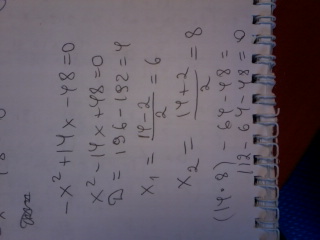 -x²+14x-48=0
x²-14x+48=0
D=196-192=4
x₁ = (14-2)/2 = 6
x₂ = (14+2)/2 = 8
(14·8)-64-48=
112-64-48=0